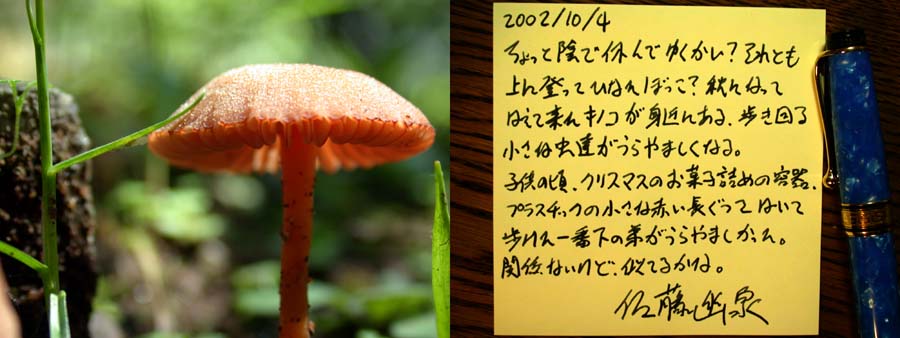 2002/10/4
ちょっと陰で休んでゆくかい？それとも
上に登ってひなたぼっこ？秋になって
はえて来たキノコが身近にある、歩き回る
小さな虫達がうらやましくなる。
子供の頃、クリスマスのお菓子詰めの容器、
プラスチックの小さな赤い長ぐつではいて
歩けた一番下の弟がうらやましかった。
関係ないけど、似てるかな。
佐藤幽泉